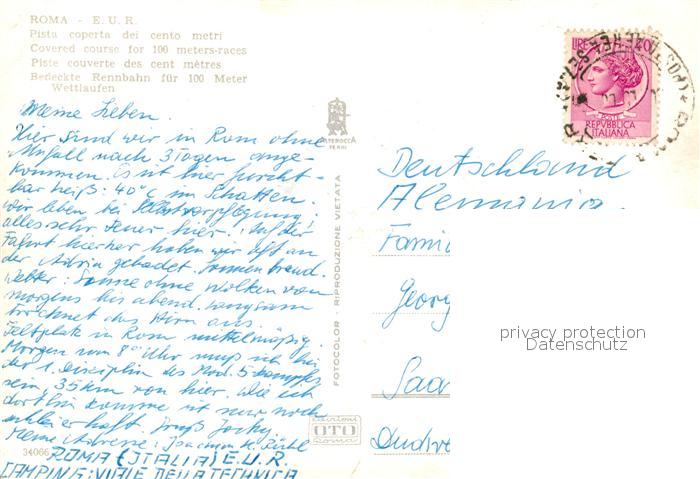 ROMA - E. U. R.
Pista coperta dei cento metri
Covered course for 100 meters-races
Piste couverte des cent mètres
Bedeckte Rennbahn für 100 Meter
Wettlaufen
Meine Lieben.
Hier sind wir in Rom ohne
Unfall nach 3 Tagen ange-
kommen. Es ist hier furcht-
bar heiß: 40°C im Schatten.
Wir leben bei Selbstverpflegung;
alles sehr teuer hier. Auf der
Fahrt hierher haben wir oft an
der Adria gebadet. Sonnenbrand.
Wetter: Sonne ohne Wolken von
morgens bis abend. Langsam
trocknet das Hirn aus.
Zeltplatz in Rom mittelmäßig.
Morgen um 8°° Uhr muß ich bei
der 1. Disziplin des Mod. 5-kampfes
sein, 35 km von hier. Wie ich
dorthin komme ist nur noch
schleierhaft. Gruß
Meine Adresse: Joachim
ROMA (ITALIA) E.U.R.
CAMPING: VIALE DELLA TECHNICA
34066
FOTOCOLOR - RIPRODUZIONE VIETATA
edizioni
OTO
Roma
LIRE
REPVBBLICA
ITALIANA
Deutschland
Alemania.
Famil
Georg
Saa
privacy protection
Datenschutz